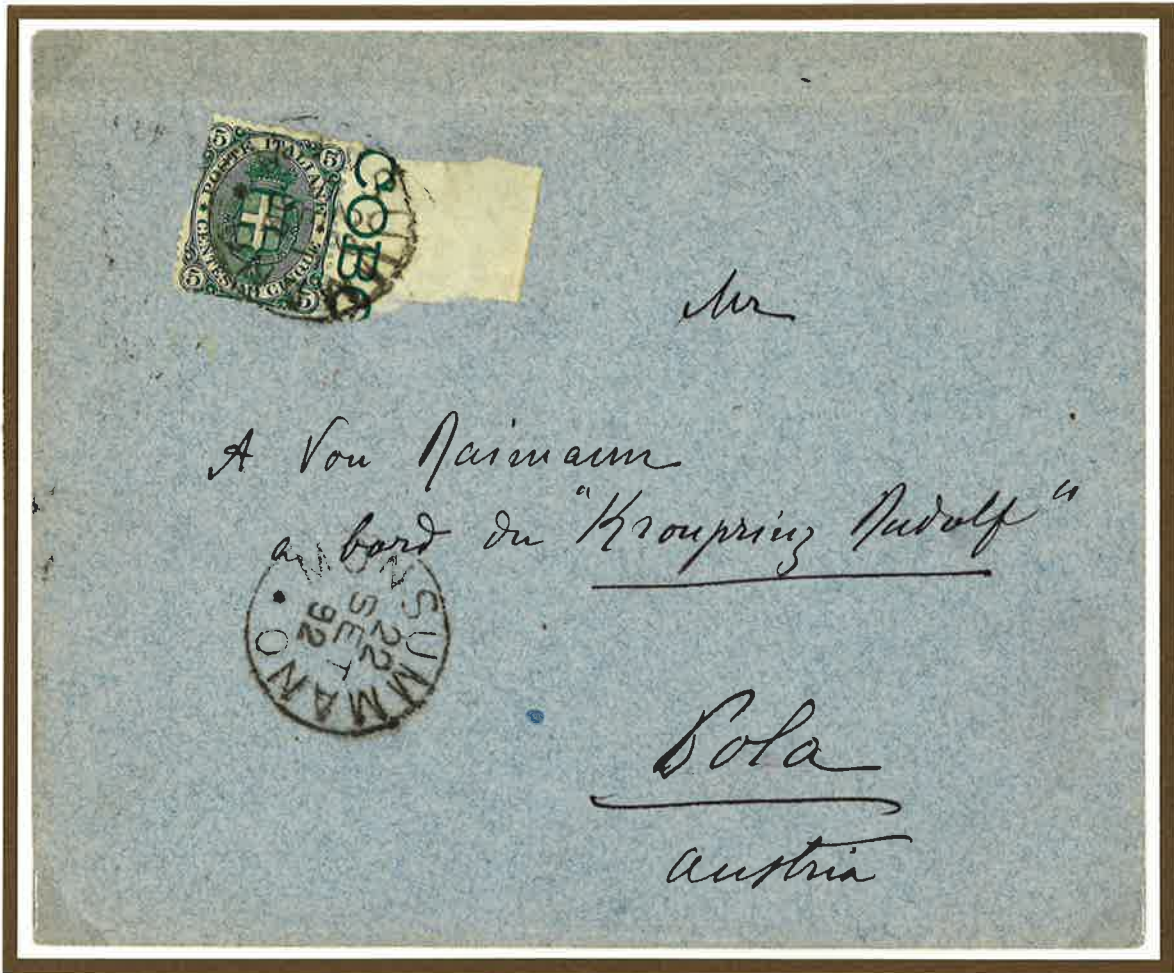 5 POSTE ITALIANE 5
5 CENTESIMI CINQUE 5
COBO
Mr
A Von Raimann
a bord du "Kronprinz Rudolf"
MONSUMMANO
22
SET
92
Pola
Austria